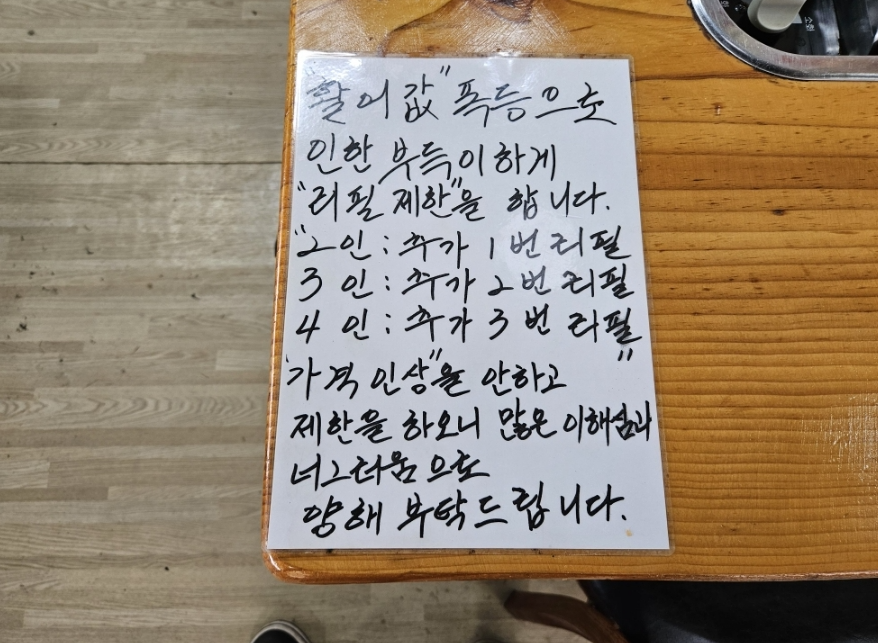 "활어값"폭등으로
인한 부득이하게
"리필 제한"을 합니다.
"2인 : 추가 1번 리필
3인 : 추가 2번 리필
4인 : 추가 3번 리필"
"가격 인상"을 안하고
제한을 하오니 많은 이해심과
너그러움으로
양해 부탁드립니다.